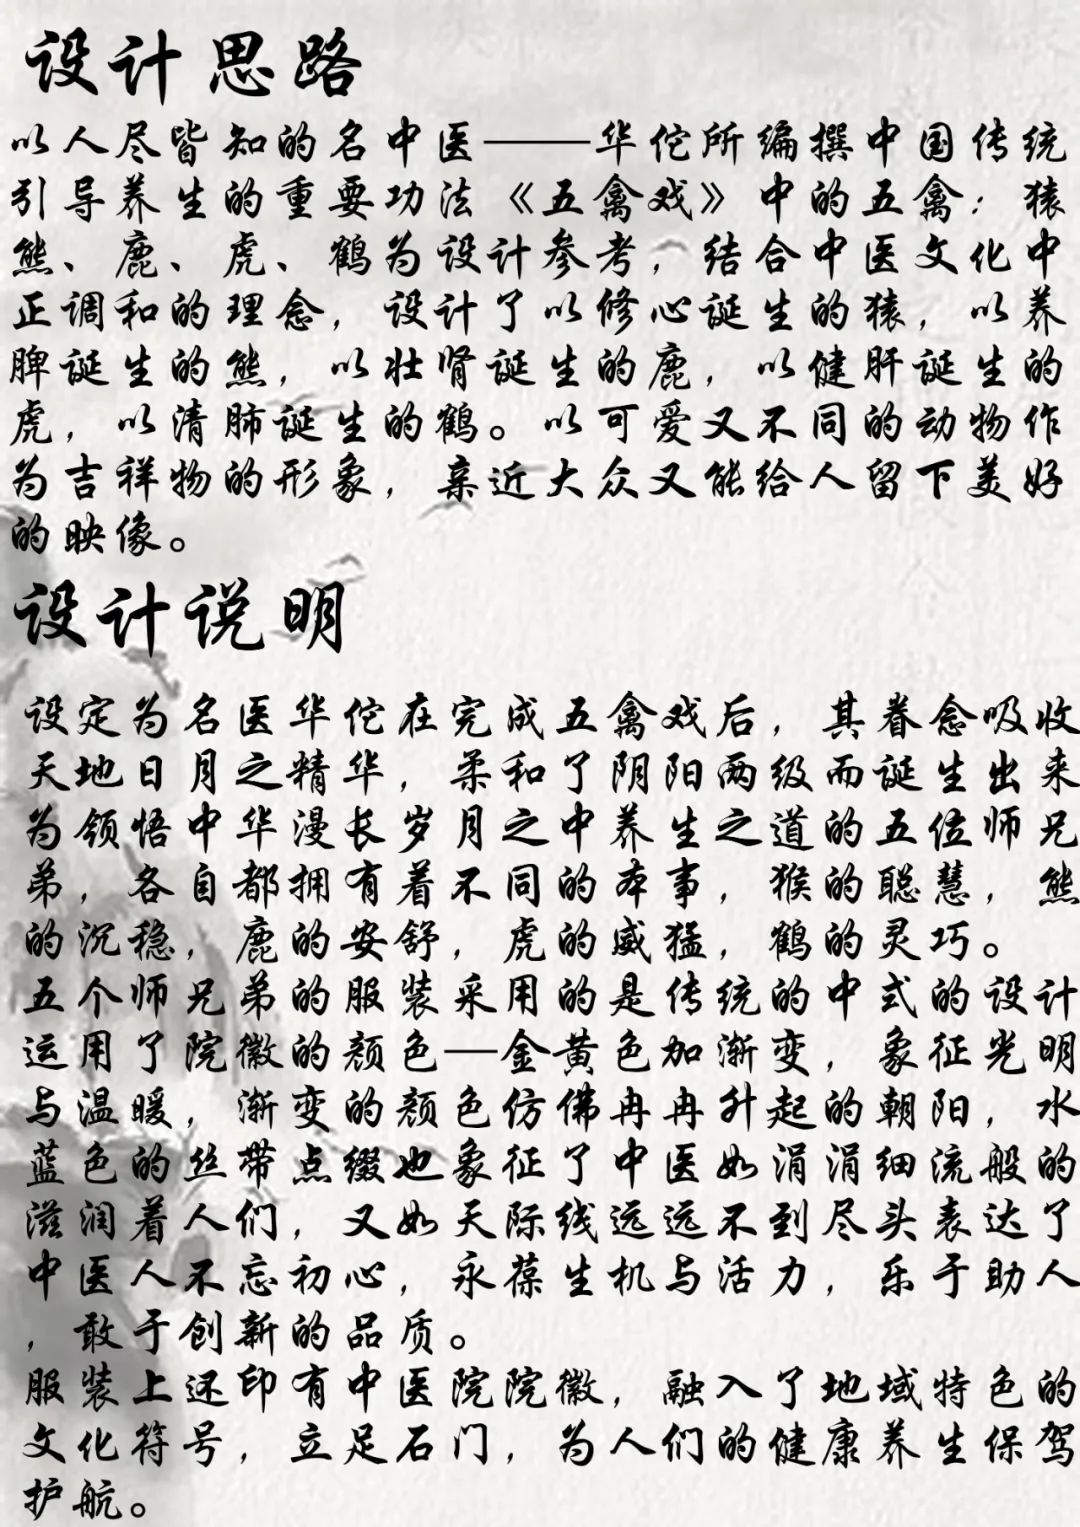 设计思路
以人尽皆知的名中医——华佗所编撰中国传统
引导养生的重要功法《五禽戏》中的五禽：猿
熊、鹿、虎、鹤为设计参考，结合中医文化中
正调和的理念，设计了以修心诞生的猿，以养
脾诞生的熊，以壮肾诞生的鹿，以健肝诞生的
虎，以清肺诞生的鹤。以可爱又不同的动物作
为吉祥物的形象，亲近大众又能给人留下美好
的映像。
设计说明
设定为名医华佗在完成五禽戏后，其眷念吸收
天地日月之精华，柔和了阴阳两级而诞生出来
为领悟中华漫长岁月之中养生之道的五位师兄
弟，各自都拥有着不同的本事，猴的聪慧，熊
的沉稳，鹿的安舒，虎的威猛，鹤的灵巧。
五个师兄弟的服装采用的是传统的中式的设计
运用了院徽的颜色—金黄色加渐变，象征光明
与温暖，渐变的颜色仿佛冉冉升起的朝阳，水
蓝色的丝带点缀也象征了中医如涓涓细流般的
滋润着人们，又如天际线远远不到尽头表达了
中医人不忘初心，永葆生机与活力，乐于助人
，敢于创新的品质。
服装上还印有中医院院徽，融入了地域特色的
文化符号，立足石门，为人们的健康养生保驾
护航。